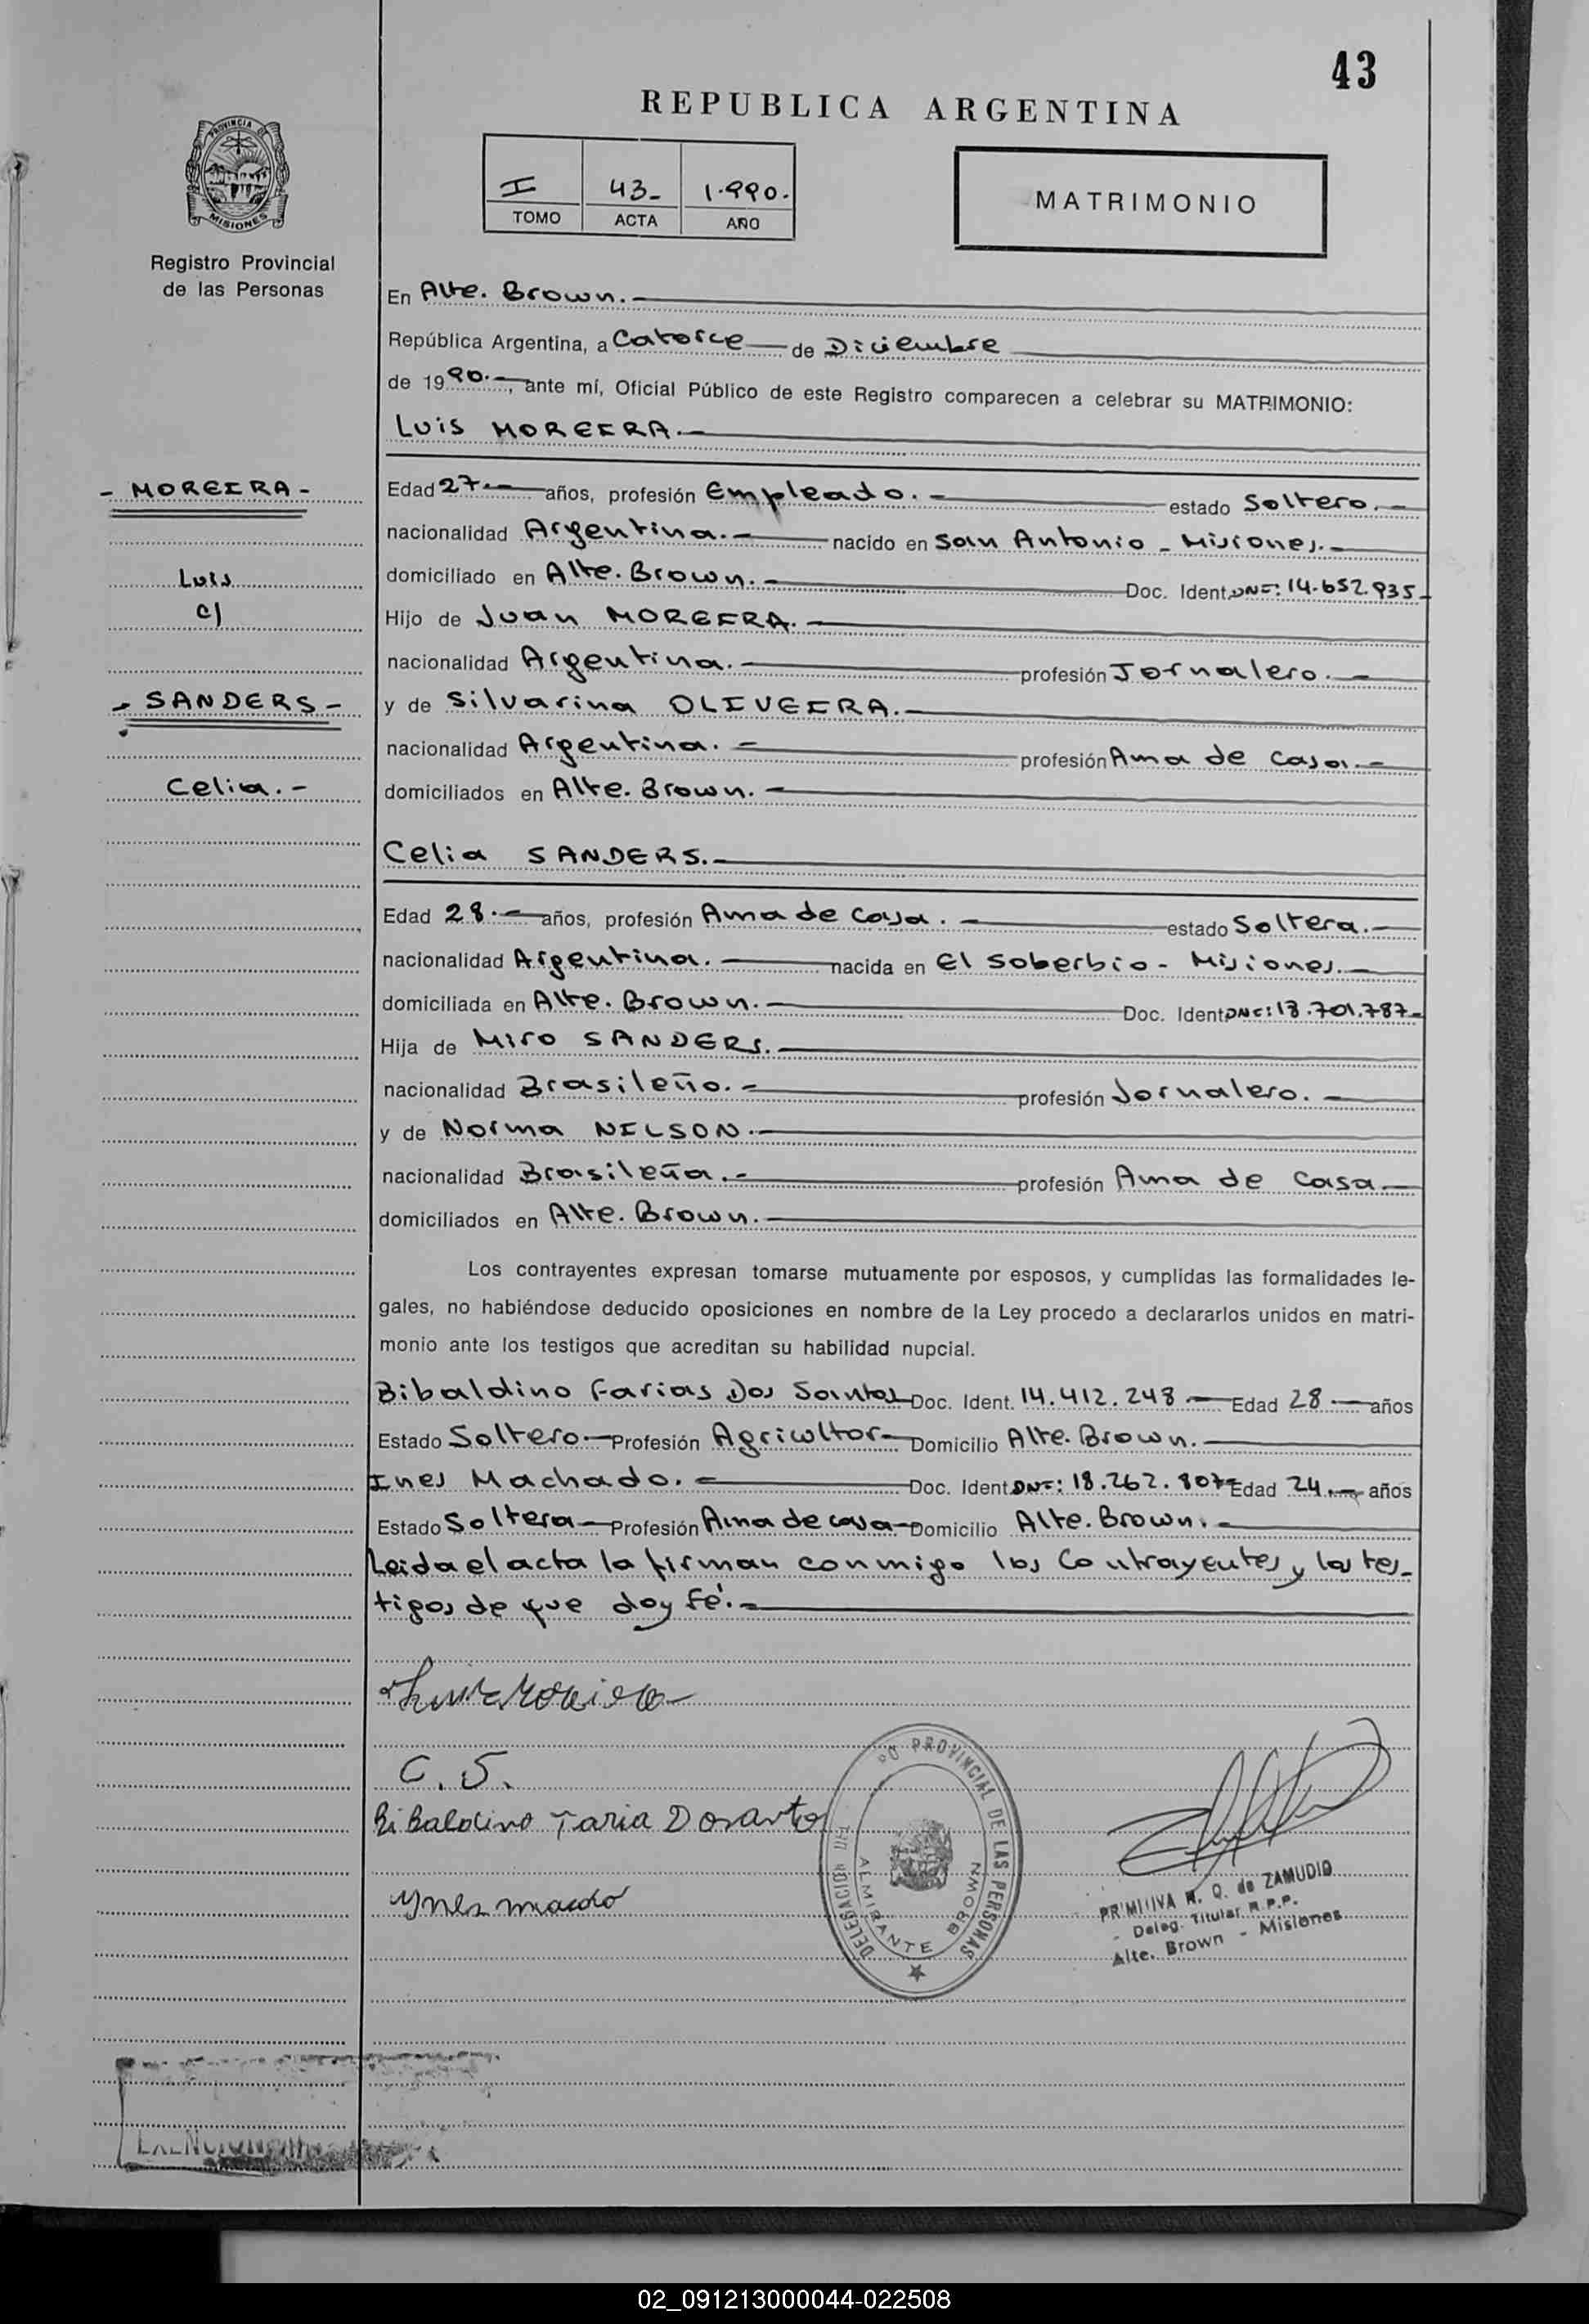 43
REPUBLICA ARGENTINA
PROVINCIA DE
MISIONES
Registro Provincial
de las Personas
I 43- 1.990.
TOMO ACTA AÑO
MATRIMONIO
En Alte. Brown.-
República Argentina, a Catorce de Diciembre
de 1990.-, ante mí, Oficial Público de este Registro comparecen a celebrar su MATRIMONIO:
Luis MOREIRA.-
- MOREIRA -
Edad 27.- años, profesión Empleado.- estado Soltero.-
nacionalidad Argentina.- nacido en San Antonio - Misiones.-
Luis
domiciliado en Alte. Brown.- Doc. Ident. DNI: 14.652.935-
c/
Hijo de Juan MOREIRA.-
nacionalidad Argentina.- profesión Jornalero.-
- SANDERS -
y de Silvarina OLIVEIRA.-
nacionalidad Argentina.- profesión Ama de Casa.-
Celia.-
domiciliados en Alte. Brown.-
Celia SANDERS.-
Edad 28.- años, profesión Ama de Casa.- estado Soltera.-
nacionalidad Argentina.- nacida en El Soberbio - Misiones.-
domiciliada en Alte. Brown.- Doc. Ident. DNI: 18.701.787-
Hija de Miro SANDERS.-
nacionalidad Brasileño.- profesión Jornalero.-
y de Norma NILSON.-
nacionalidad Brasileña.- profesión Ama de Casa-
domiciliados en Alte. Brown.-
Los contrayentes expresan tomarse mutuamente por esposos, y cumplidas las formalidades le-
gales, no habiéndose deducido oposiciones en nombre de la Ley procedo a declararlos unidos en matri-
monio ante los testigos que acreditan su habilidad nupcial.
Bibaldino Farias Dos Santos Doc. Ident. 14.412.248.- Edad 28.- años
Estado Soltero- Profesión Agricultor- Domicilio Alte. Brown.-
Ines Machado.- Doc. Ident. DNI: 18.262.807- Edad 24.- años
Estado Soltera- Profesión Ama de casa- Domicilio Alte. Brown.-
Leida el acta la firman conmigo los Contrayentes y los tes-
tigos de que doy Fé.-
C. S.
Bibaldino Faria Dosanto
PROVINCIAL DE LAS PERSONAS
DELEGACION
ALMIRANTE BROWN
PRIMITIVA R. Q. de ZAMUDIO
- Deleg. Titular R.P.P.
Alte. Brown - Misiones
02_091213000044-022508